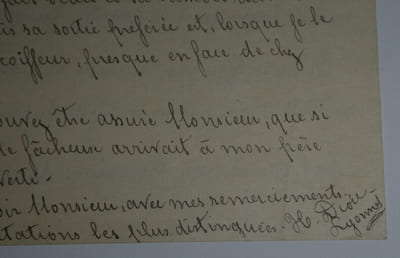 is sa sortie préférée et, lorsque je le
coiffeur, presque en face de chez
ouvez être assuré Monsieur, que si
de fâcheux arrivait à mon frère
verti.
oir Monsieur, avec mes remerciements
tations les plus distinguées. H.